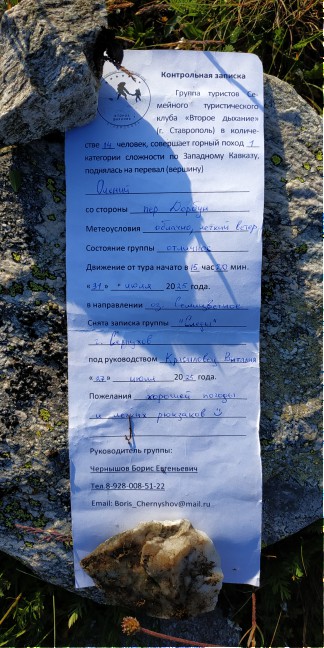 Контрольная записка
Группа туристов Се-
мейного туристического
клуба «Второе дыхание»
(г. Ставрополь) в количе-
стве 14 человек, совершает горный поход 1
категории сложности по Западному Кавказу,
поднялась на перевал (вершину)
Олений
со стороны пер.
Метеоусловия облачно, легкий ветер
Состояние группы отличное
Движение от тура начато в 15 час 20 мин.
«31» июля 2025 года.
в направлении оз. Семицветное
Снята записка группы
г. Серпухов
под руководством Виталия
«27» июля 2025 года.
Пожелания хорошей погоды
и легких рюкзаков
Руководитель группы:
Чернышов Борис Евгеньевич
Тел.8-928-008-51-22
Email: Boris_Chernyshov@mail.ru